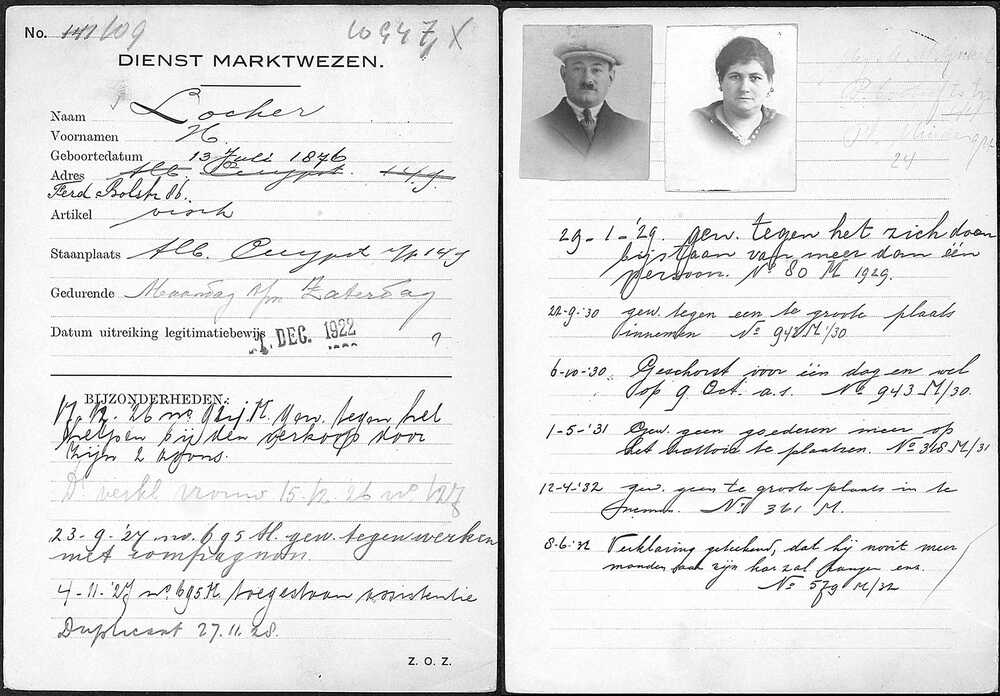 No. 141/109 10947/X
DIENST MARKTWEZEN.
Naam Locher
Voornamen H.
Geboortedatum 13 Juli 1876
Adres Alb. Cuypst. 149
Ferd Bolstr 86.
Artikel visch
Staanplaats Alb. Cuypst 149
Gedurende Maandag t/m Zaterdag
Datum uitreiking legitimatiebewijs 1. DEC. 1922 ?
BIJZONDERHEDEN:
17.12.26 no gew. tegen het
helpen bij den verkoop door
zijn 2 zoons.
verkl vrouw 15-12 26 no
23-9-'27 no. 695 M. gew. tegen werken
met compagnon.
4-11-'27 no 695 M toegestaan assistentie
Duplicaat 27.11.28.
Z. O. Z.
24
29-1-'29. gew. tegen het zich doen
bijstaan van meer dan één
persoon. No 80 M 1929.
22-9-'30 gew. tegen een te groote plaats
innemen No 942 M/30
6-10-'30. Geschorst voor één dag en wel
op 9 Oct. a.s. No 943 M/30.
1-5-'31 Gew. geen goederen meer op
het trottoir te plaatsen. No 318 M/31
12-4-'32 gew. geen te groote plaats in te
nemen. No 361 M.
8-6-'32 Verklaring geteekend, dat hij nooit meer
manden aan zijn kar zal hangen enz.
No 579 M/32